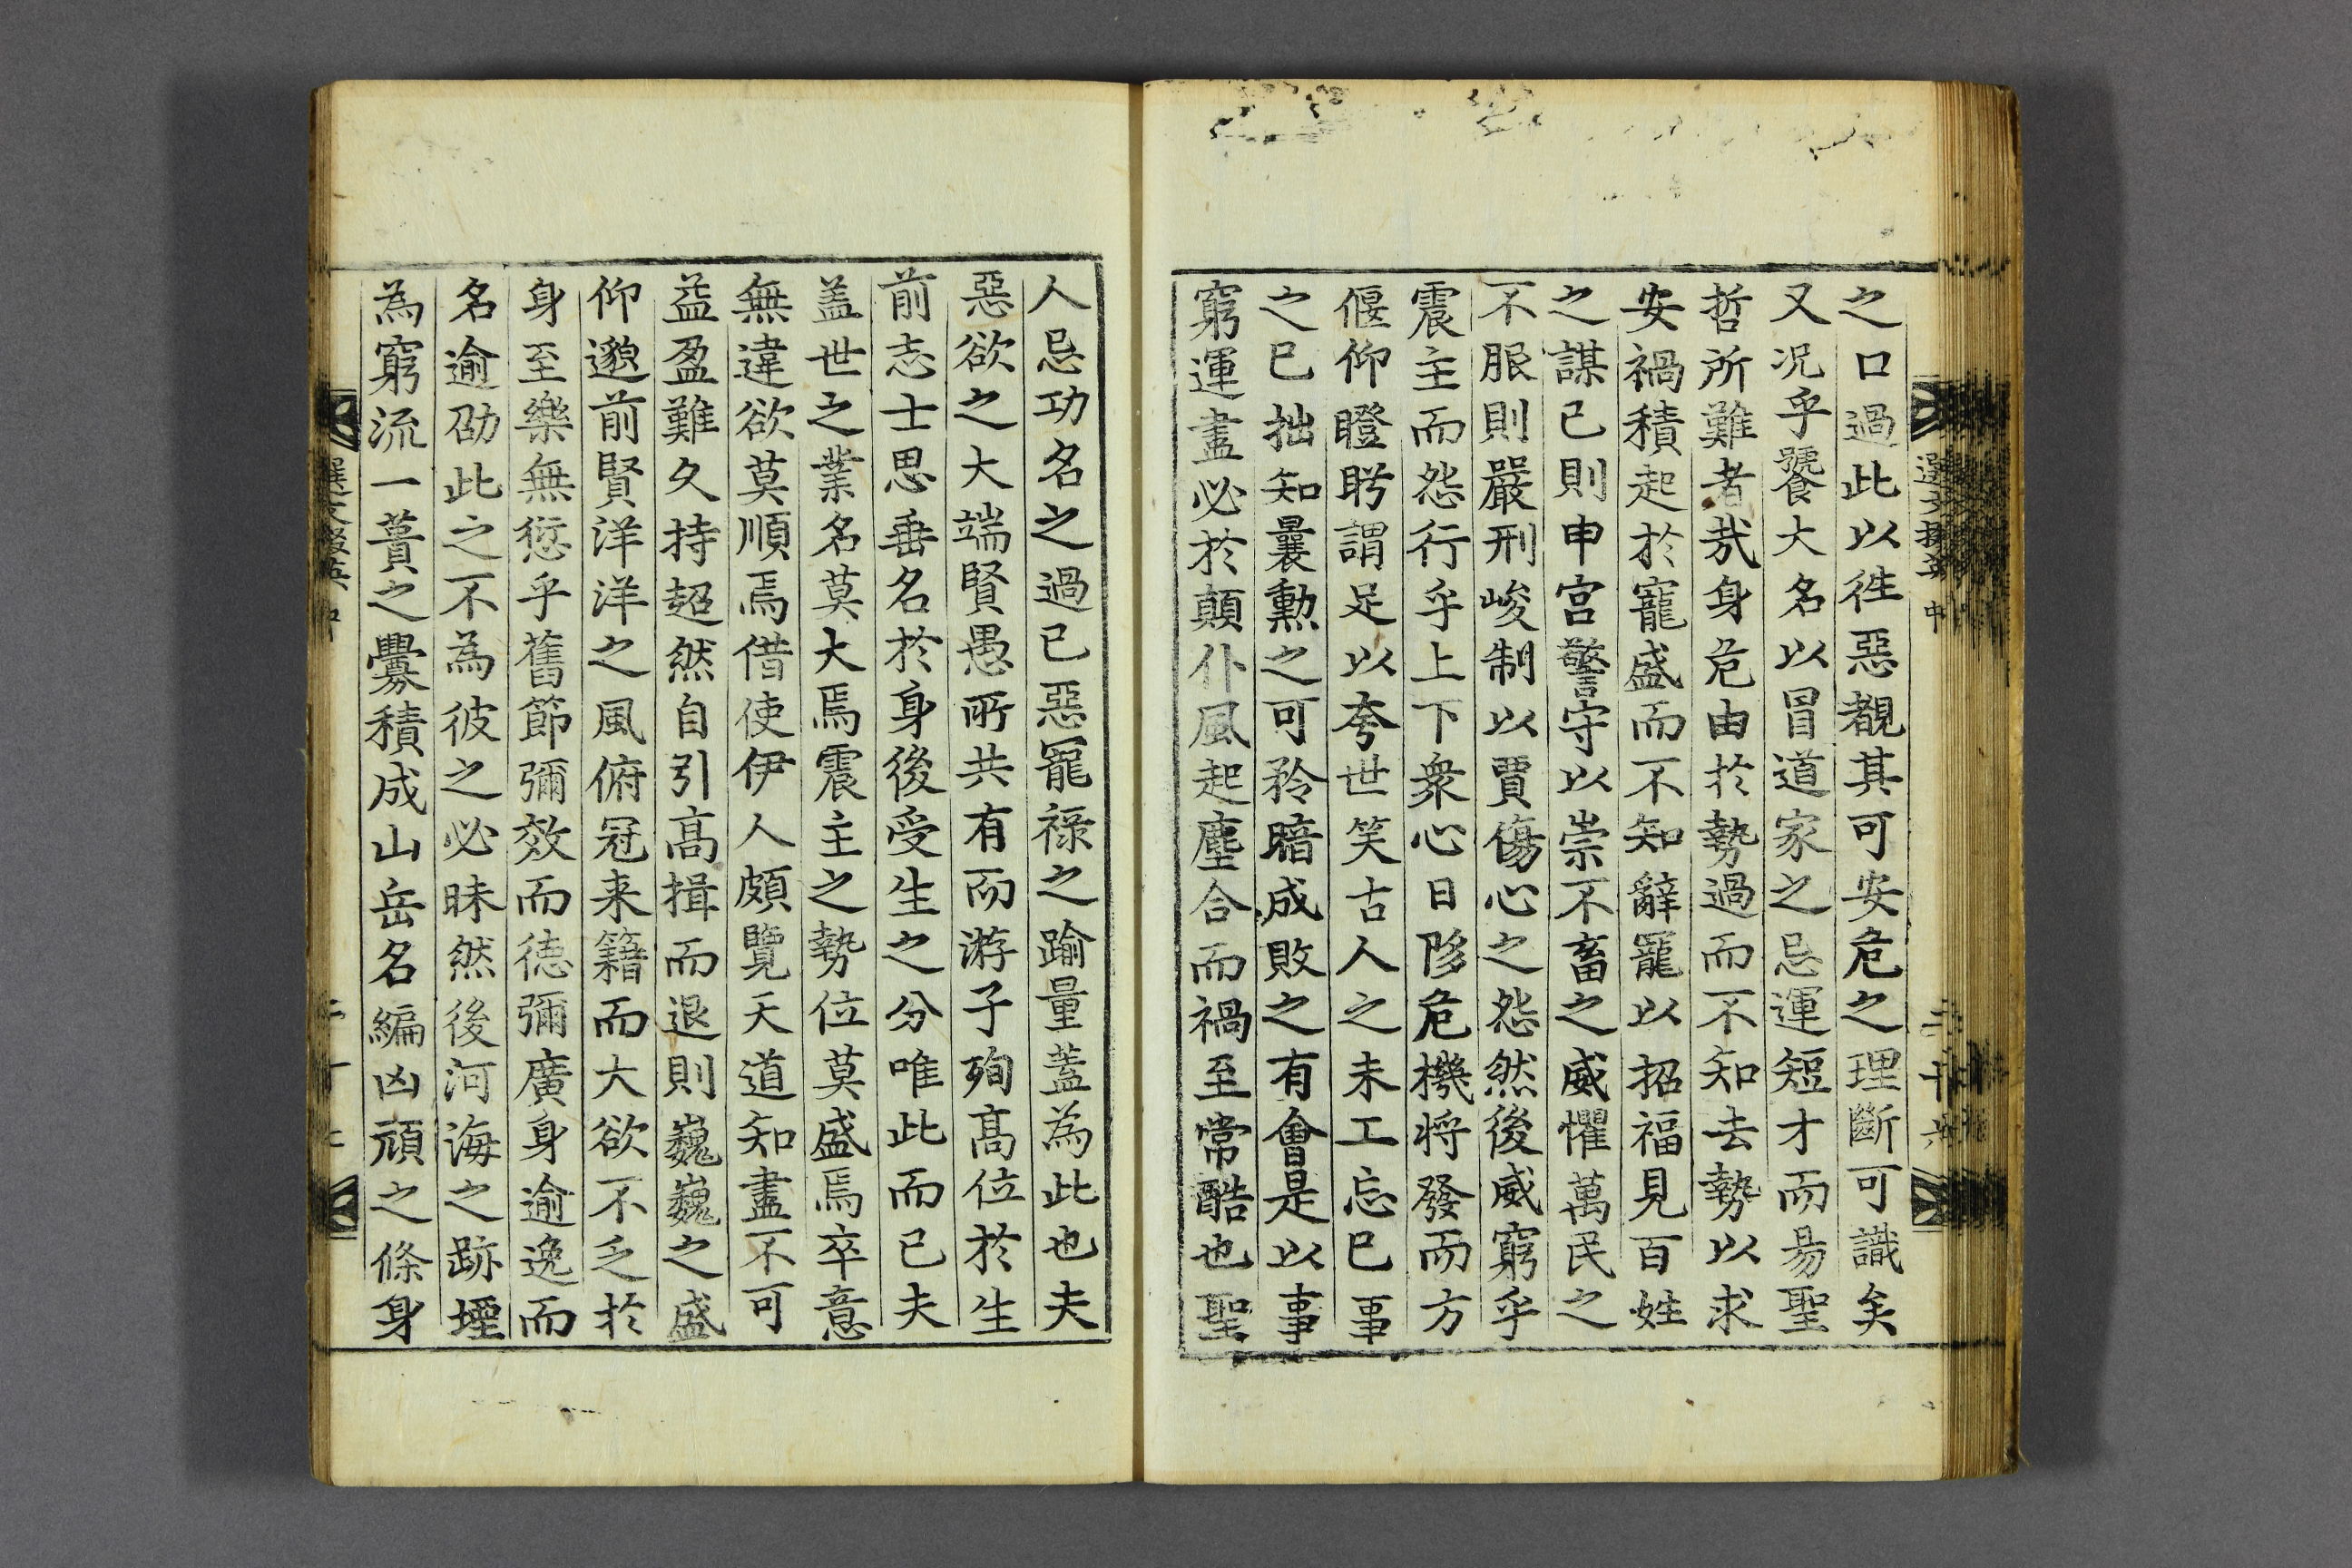 之口過此以徃惡覩其可安危之理斷可識矣
又况乎饕大名以冒道家之忌運短才而昜聖
哲所難者㢤身危由於勢過而不知去勢以求
安禍積起於寵盛而不知辭寵以招福見百姓
之謀已則申宮警守以崇不畜之威懼萬民之
不服則嚴刑峻制以賈傷心之怨然後威窮乎
震主而怨行乎上下衆心日陊危機将發而方
偃仰瞪眄謂足以夸世笑古人之未工忘巳事
之巳拙知曩勲之可矜暗成敗之有會是以事
窮運盡必於顛仆風起塵合而禍至常酷也聖
人忌功名之過已惡寵祿之踰量蓋為此也夫
惡欲之大端賢愚所共有而游子殉髙位於生
前志士思垂名於身後受生之分唯此而已夫
盖世之業名莫大焉震主之勢位莫盛焉卒意
無違欲莫順焉借使伊人頗覽天道知盡不可
益盈難久持超然自引髙揖而退則巍巍之盛
仰邈前賢洋洋之風俯冠来籍而大欲不乏於
身至樂無愆乎舊節彌效而徳彌廣身逾逸而
名逾劭此之不為彼之必昧然後河海之跡堙
為窮流一蕢之釁積成山岳名編凶頑之條身
選文掇英 中